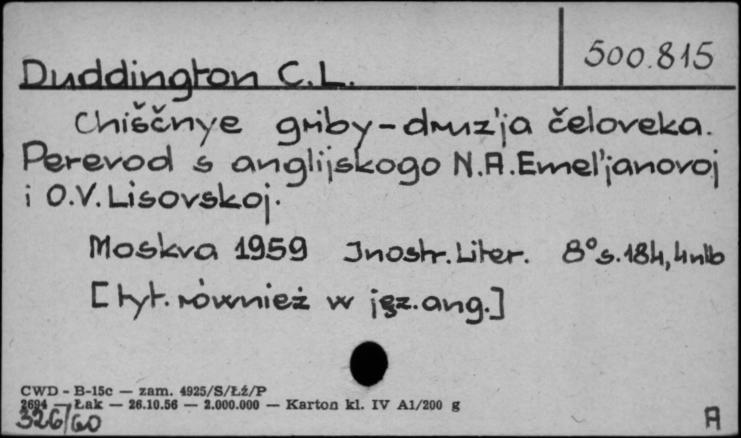 500.815
Duddington C.L.
Chiščnye griby-druz'ja čeloveka.
Perevod s anglijskogo N.A.Emel'janovoj
i O.V.Lisovskoj.
Moskva 1959 Inostr.Liter. 8° s.184, 4nlb
[tyt. również w jęz.ang.]
CWD - B-15c — zam. 4925/S/Łź/P
2694 — Łak — 26.10.56 — 2.000.000 — Karton kl. IV A1/200 g
326/60
A